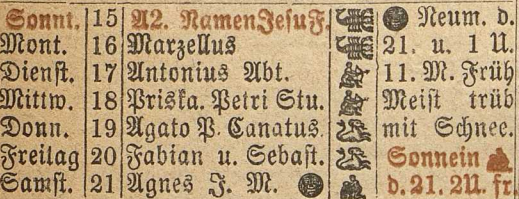 Sonnt. 15 A2. Namen Jesu F. Neum. d.
Mont. 16 Marzellus 21. u. 1 U.
Dienst. 17 Antonius Abt. 11. M. Früh
Mittw. 18 Priska. Petri Stu. Meist trüb
Donn. 19 Agato P. Canatus. mit Schnee.
Freitag 20 Fabian u. Sebast. Sonne in
Samst. 21 Agnes J. M. d. 21. 2U. fr.